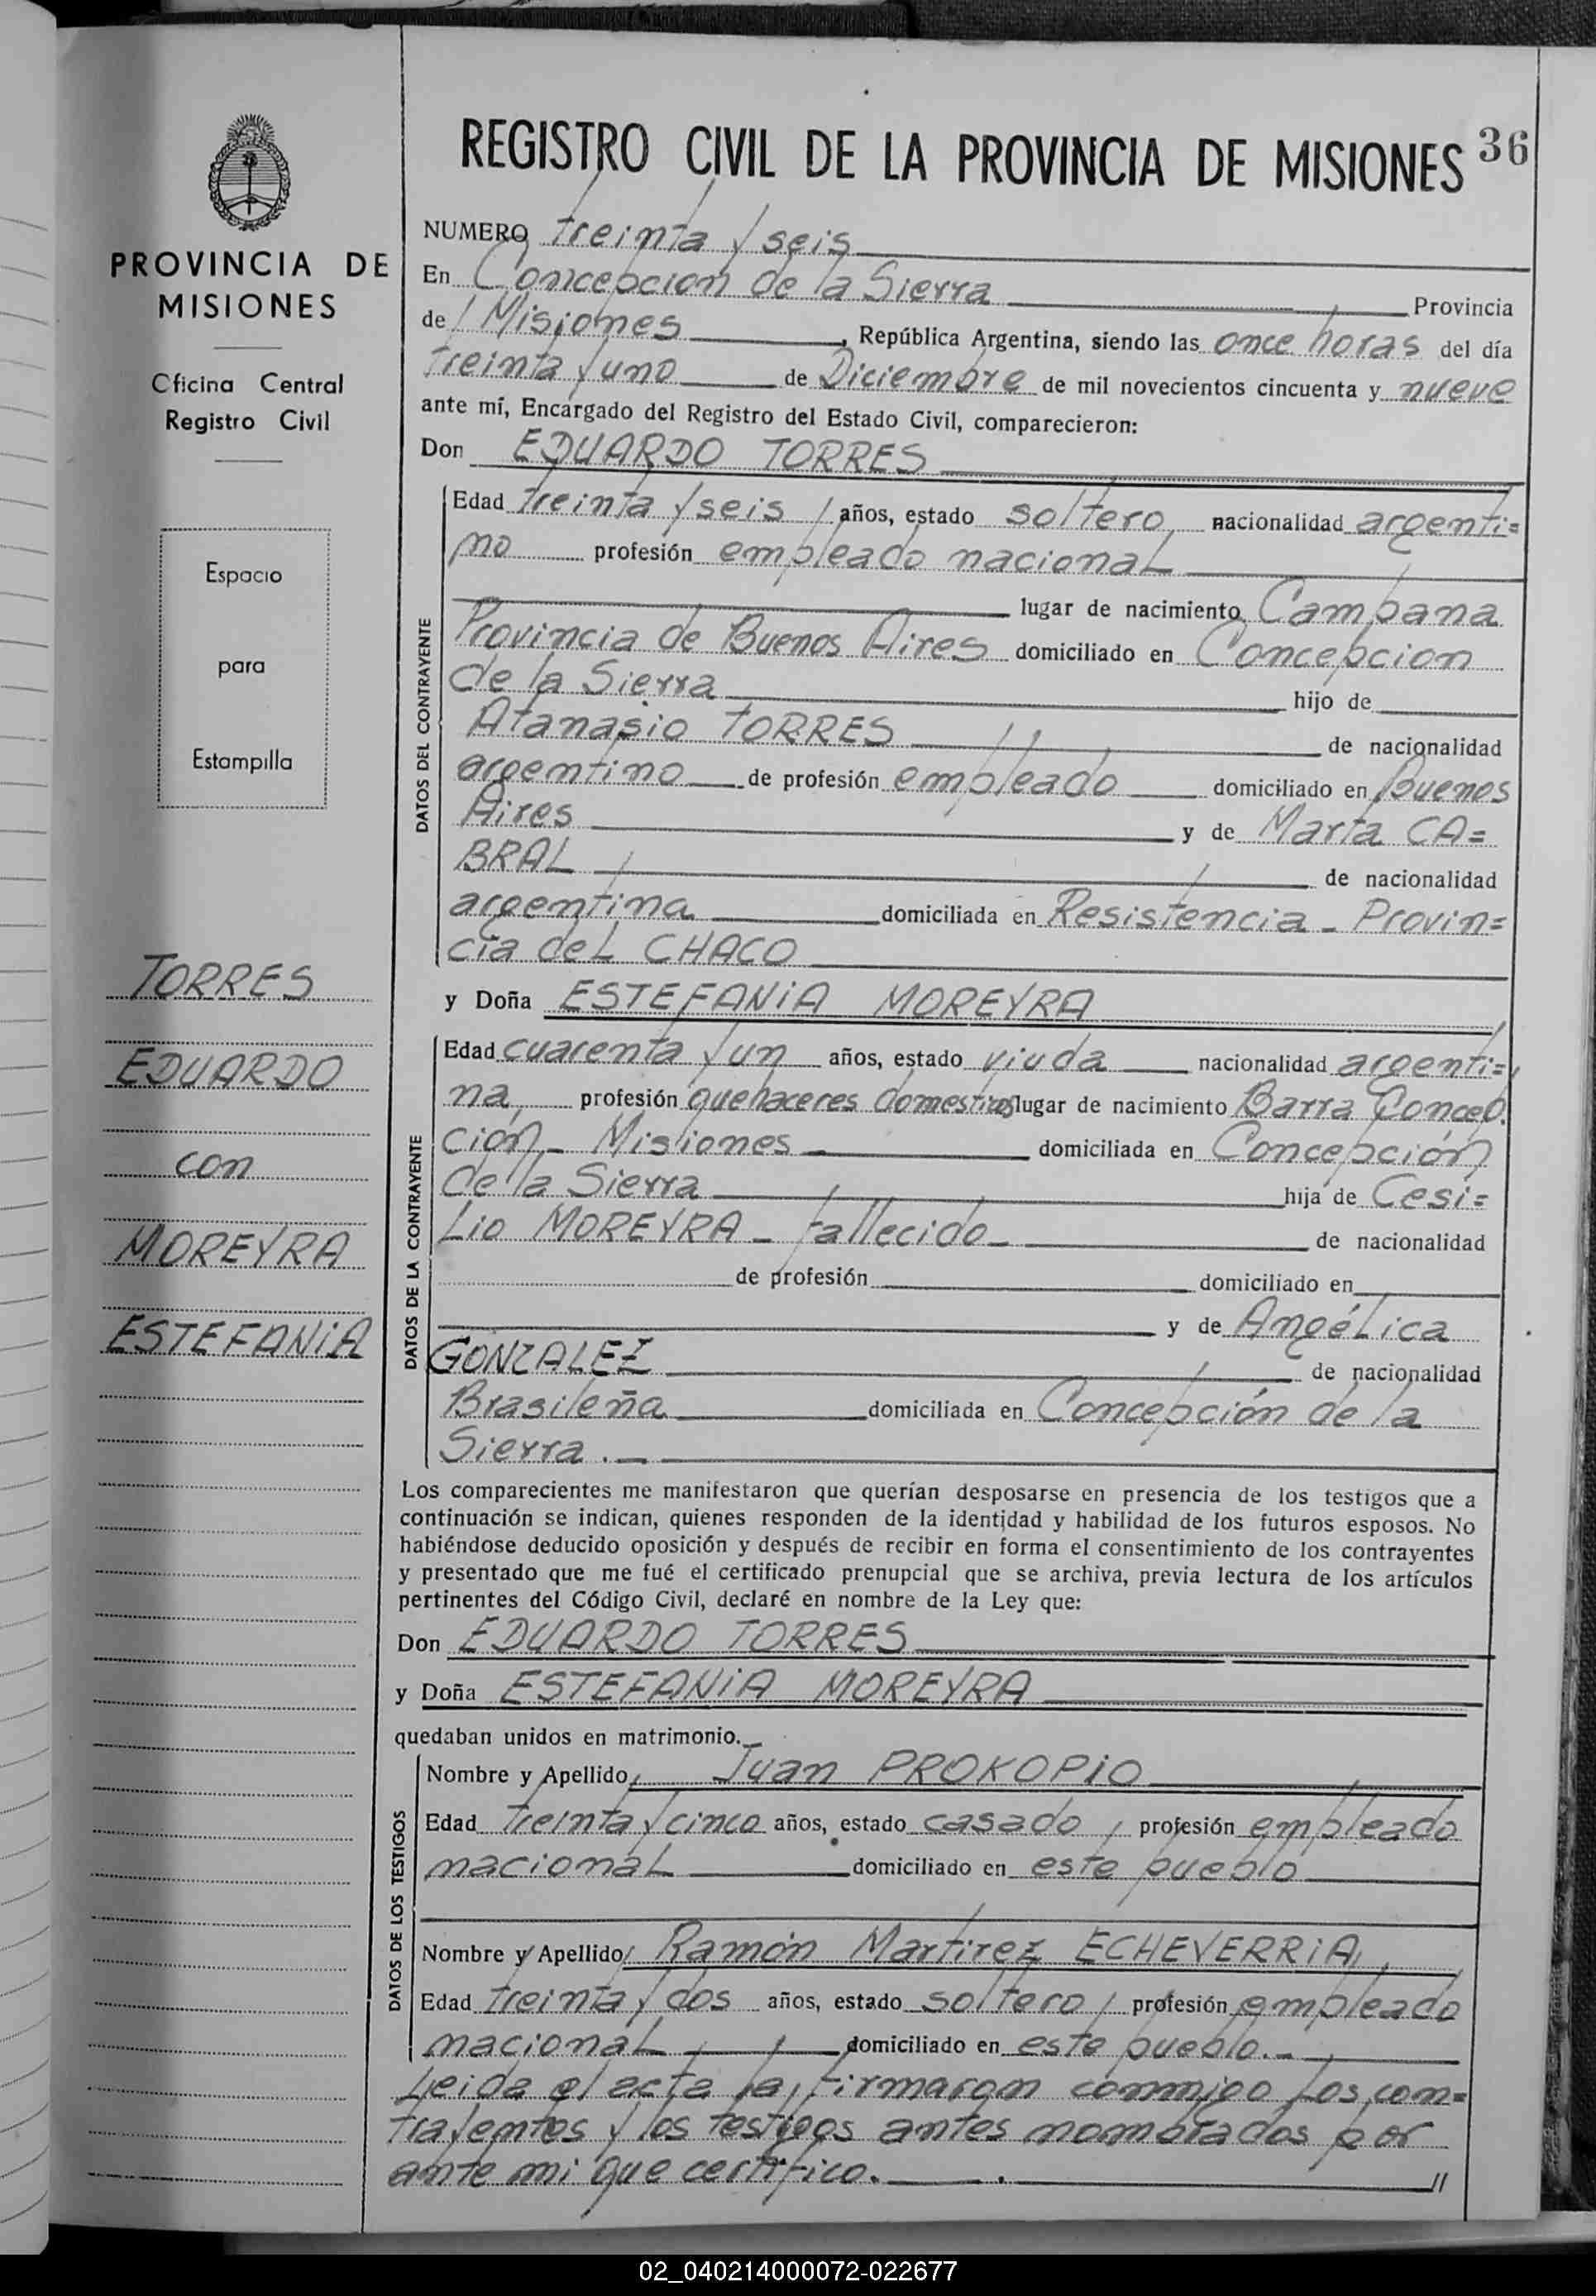 PROVINCIA DE
MISIONES
Oficina Central
Registro Civil
Espacio
para
Estampilla
TORRES
EDUARDO
con
MOREYRA
ESTEFANIA
REGISTRO CIVIL DE LA PROVINCIA DE MISIONES 36
NUMERO treinta y seis
En Concepcion de la Sierra Provincia
de Misiones, República Argentina, siendo las once horas del día
treinta y uno de Diciembre de mil novecientos cincuenta y nueve
ante mí, Encargado del Registro del Estado Civil, comparecieron:
Don EDUARDO TORRES
DATOS DEL CONTRAYENTE
Edad treinta y seis años, estado soltero, nacionalidad argenti=
no profesión empleado nacional
lugar de nacimiento Campana
Provincia de Buenos Aires domiciliado en Concepcion
de la Sierra hijo de
Atanasio TORRES de nacionalidad
argentino de profesión empleado domiciliado en Buenos
Aires y de Marta CA=
BRAL de nacionalidad
argentina domiciliada en Resistencia - Provin=
cia del CHACO
y Doña ESTEFANIA MOREYRA
DATOS DE LA CONTRAYENTE
Edad cuarenta y un años, estado viuda nacionalidad argenti=
na, profesión quehaceres domesticos lugar de nacimiento Barra Concep.
ción - Misiones domiciliada en Concepción
de la Sierra hija de Cesi=
Lio MOREYRA - fallecido - de nacionalidad
de profesión domiciliado en
y de Angélica
GONZALEZ de nacionalidad
Brasileña domiciliada en Concepción de la
Sierra. -
Los comparecientes me manifestaron que querían desposarse en presencia de los testigos que a
continuación se indican, quienes responden de la identidad y habilidad de los futuros esposos. No
habiéndose deducido oposición y después de recibir en forma el consentimiento de los contrayentes
y presentado que me fué el certificado prenupcial que se archiva, previa lectura de los artículos
pertinentes del Código Civil, declaré en nombre de la Ley que:
Don EDUARDO TORRES
y Doña ESTEFANIA MOREYRA
quedaban unidos en matrimonio.
DATOS DE LOS TESTIGOS
Nombre y Apellido Juan PROKOPIO
Edad treinta y cinco años, estado casado, profesión empleado
nacional domiciliado en este pueblo
Nombre y Apellido Ramón Martirez ECHEVERRIA,
Edad treinta y dos años, estado soltero, profesión empleado
nacional domiciliado en este pueblo. -
Leida el acta la firmaron conmigo los con=
trayentes y los testigos antes nombrados por
ante mi que certifico. //
02_040214000072-022677